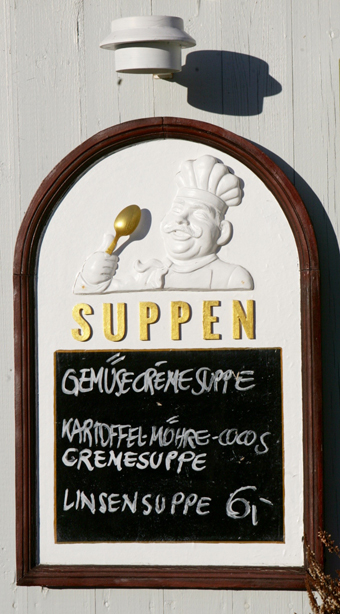 SUPPEN
GEMÜSECRÈMESUPPE
KARTOFFEL MÖHRE-COCOS
CREMESUPPE
LINSENSUPPE 6,-